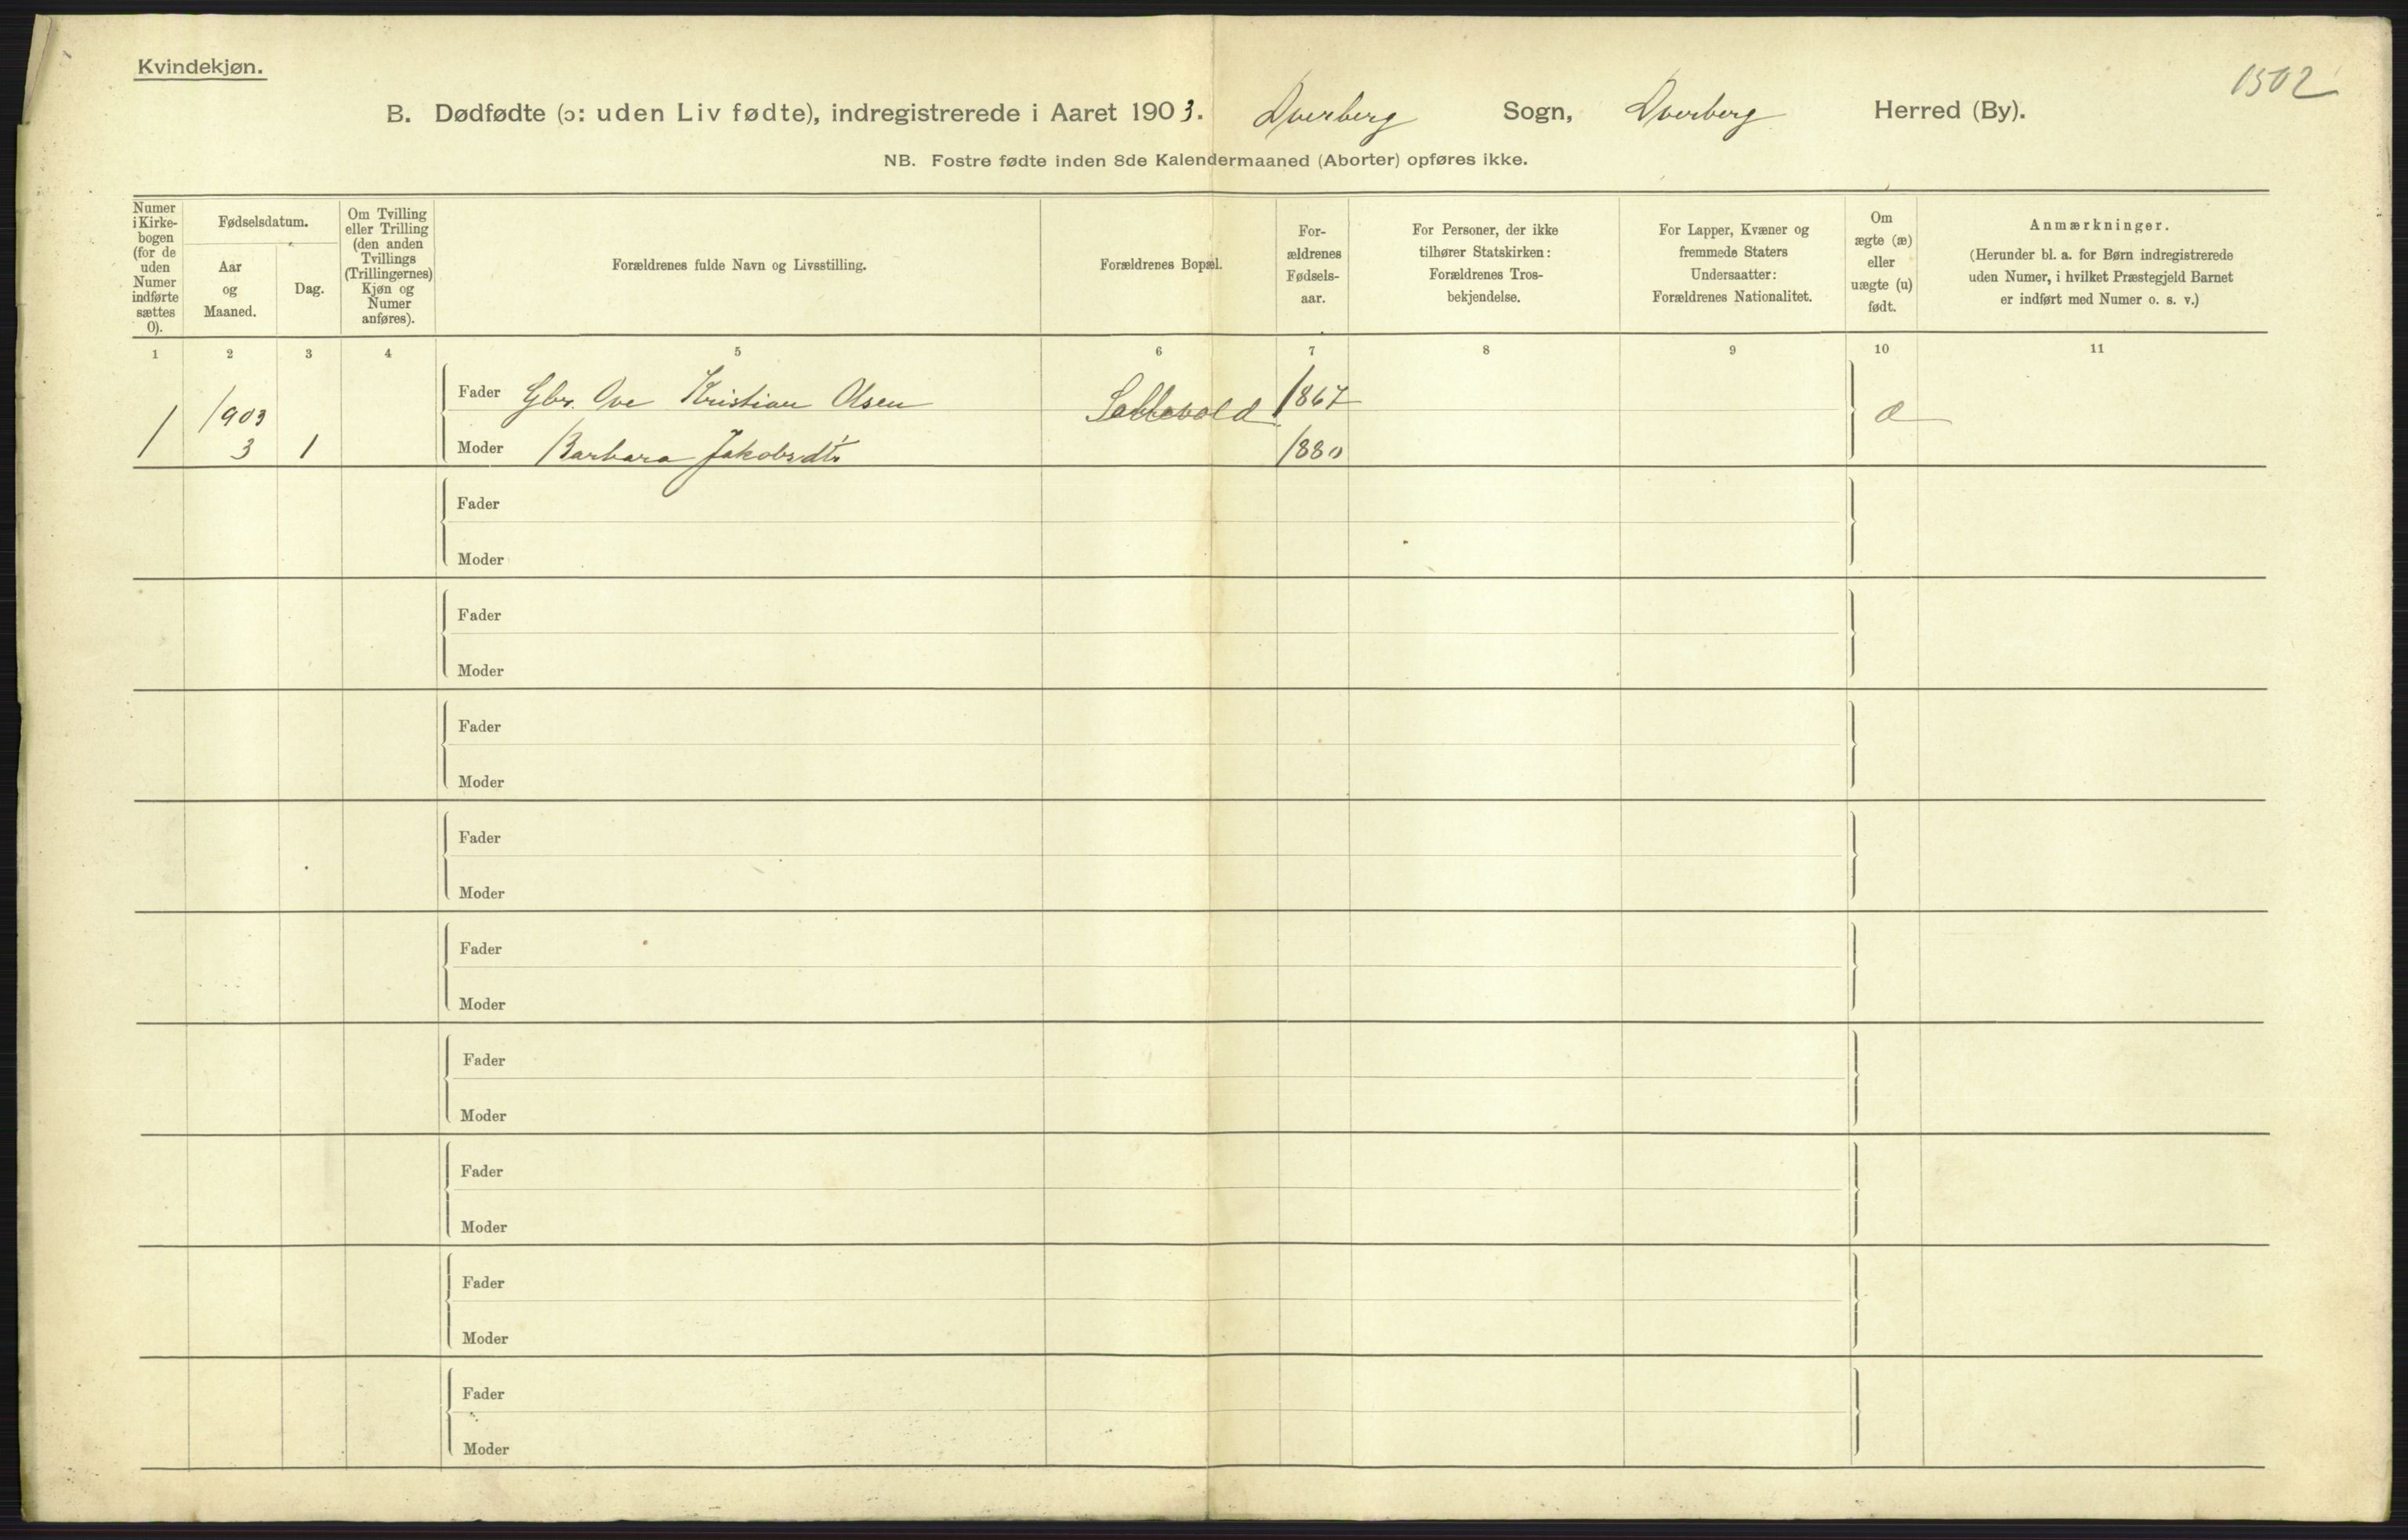 Kvindekjøn.
1502
B. Dødfødte (ɔ: uden Liv fødte), indregistrerede i Aaret 1903. Dverberg Sogn, Dverberg Herred (By).
NB. Fostre fødte inden 8de Kalendermaaned (Aborter) opføres ikke.
Numer
i Kirke-
bogen
(for de
uden
Numer
indførte
sættes
0).
Fødselsdatum.
Aar
og
Maaned.
Dag.
Om Tvilling
eller Trilling
(den anden
Tvillings
(Trillingernes)
Kjøn og
Numer
anføres).
Forældrenes fulde Navn og Livsstilling.
Forældrenes Bopæl.
For-
ældrenes
Fødsels-
aar.
For Personer, der ikke
tilhører Statskirken:
Forældrenes Tros-
bekjendelse.
For Lapper, Kvæner og
fremmede Staters
Undersaatter:
Forældrenes Nationalitet.
Om
ægte (æ)
eller
uægte (u)
født.
Anmærkninger.
(Herunder bl. a. for Børn indregistrerede
uden Numer, i hvilket Præstegjeld Barnet
er indført med Numer o. s. v.)
1 2 3 4 5 6 7 8 9 10 11
1903 Fader Gbr. Ove Kristian Olsen 1867 æ
1 3 1 Moder Barbara Jakobsdtr 1880
Fader
Moder
Fader
Moder
Fader
Moder
Fader
Moder
Fader
Moder
Fader
Moder
Fader
Moder
Fader
Moder
Fader
Moder